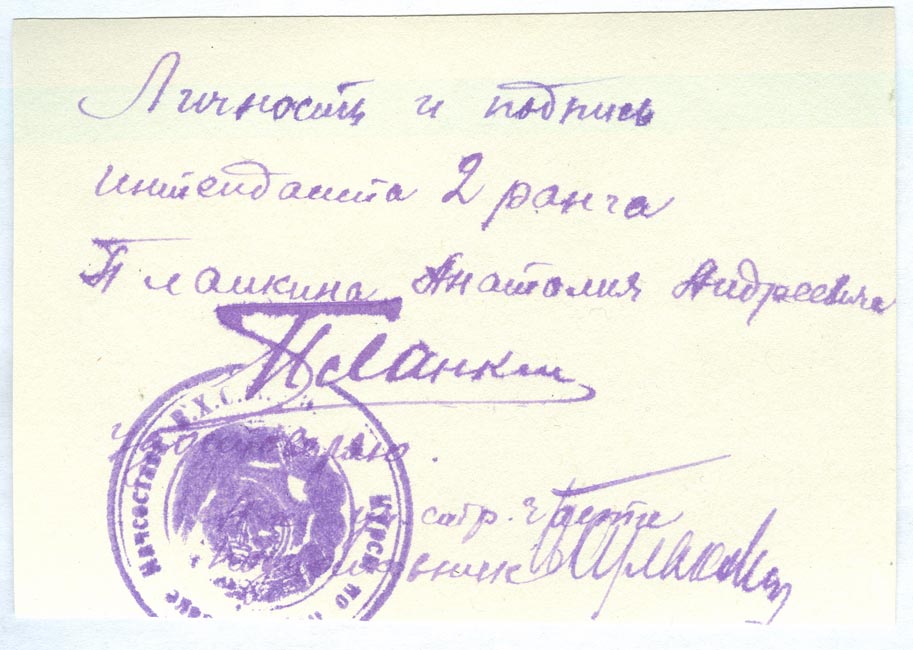 Личность и подпись
интенданта 2 ранга
Планкина Анатолия Андреевича
Планкин
удостоверяю.
стр. части
Начсостава В.Х.С.
Курсы по